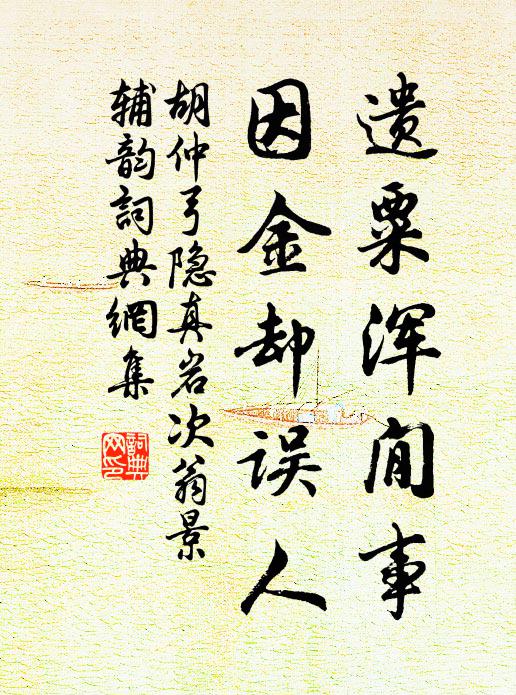 遗粟浑闲事
因金却误人
胡仲弓隐真岩次翁景
辅韵詞典網集
詞典网印